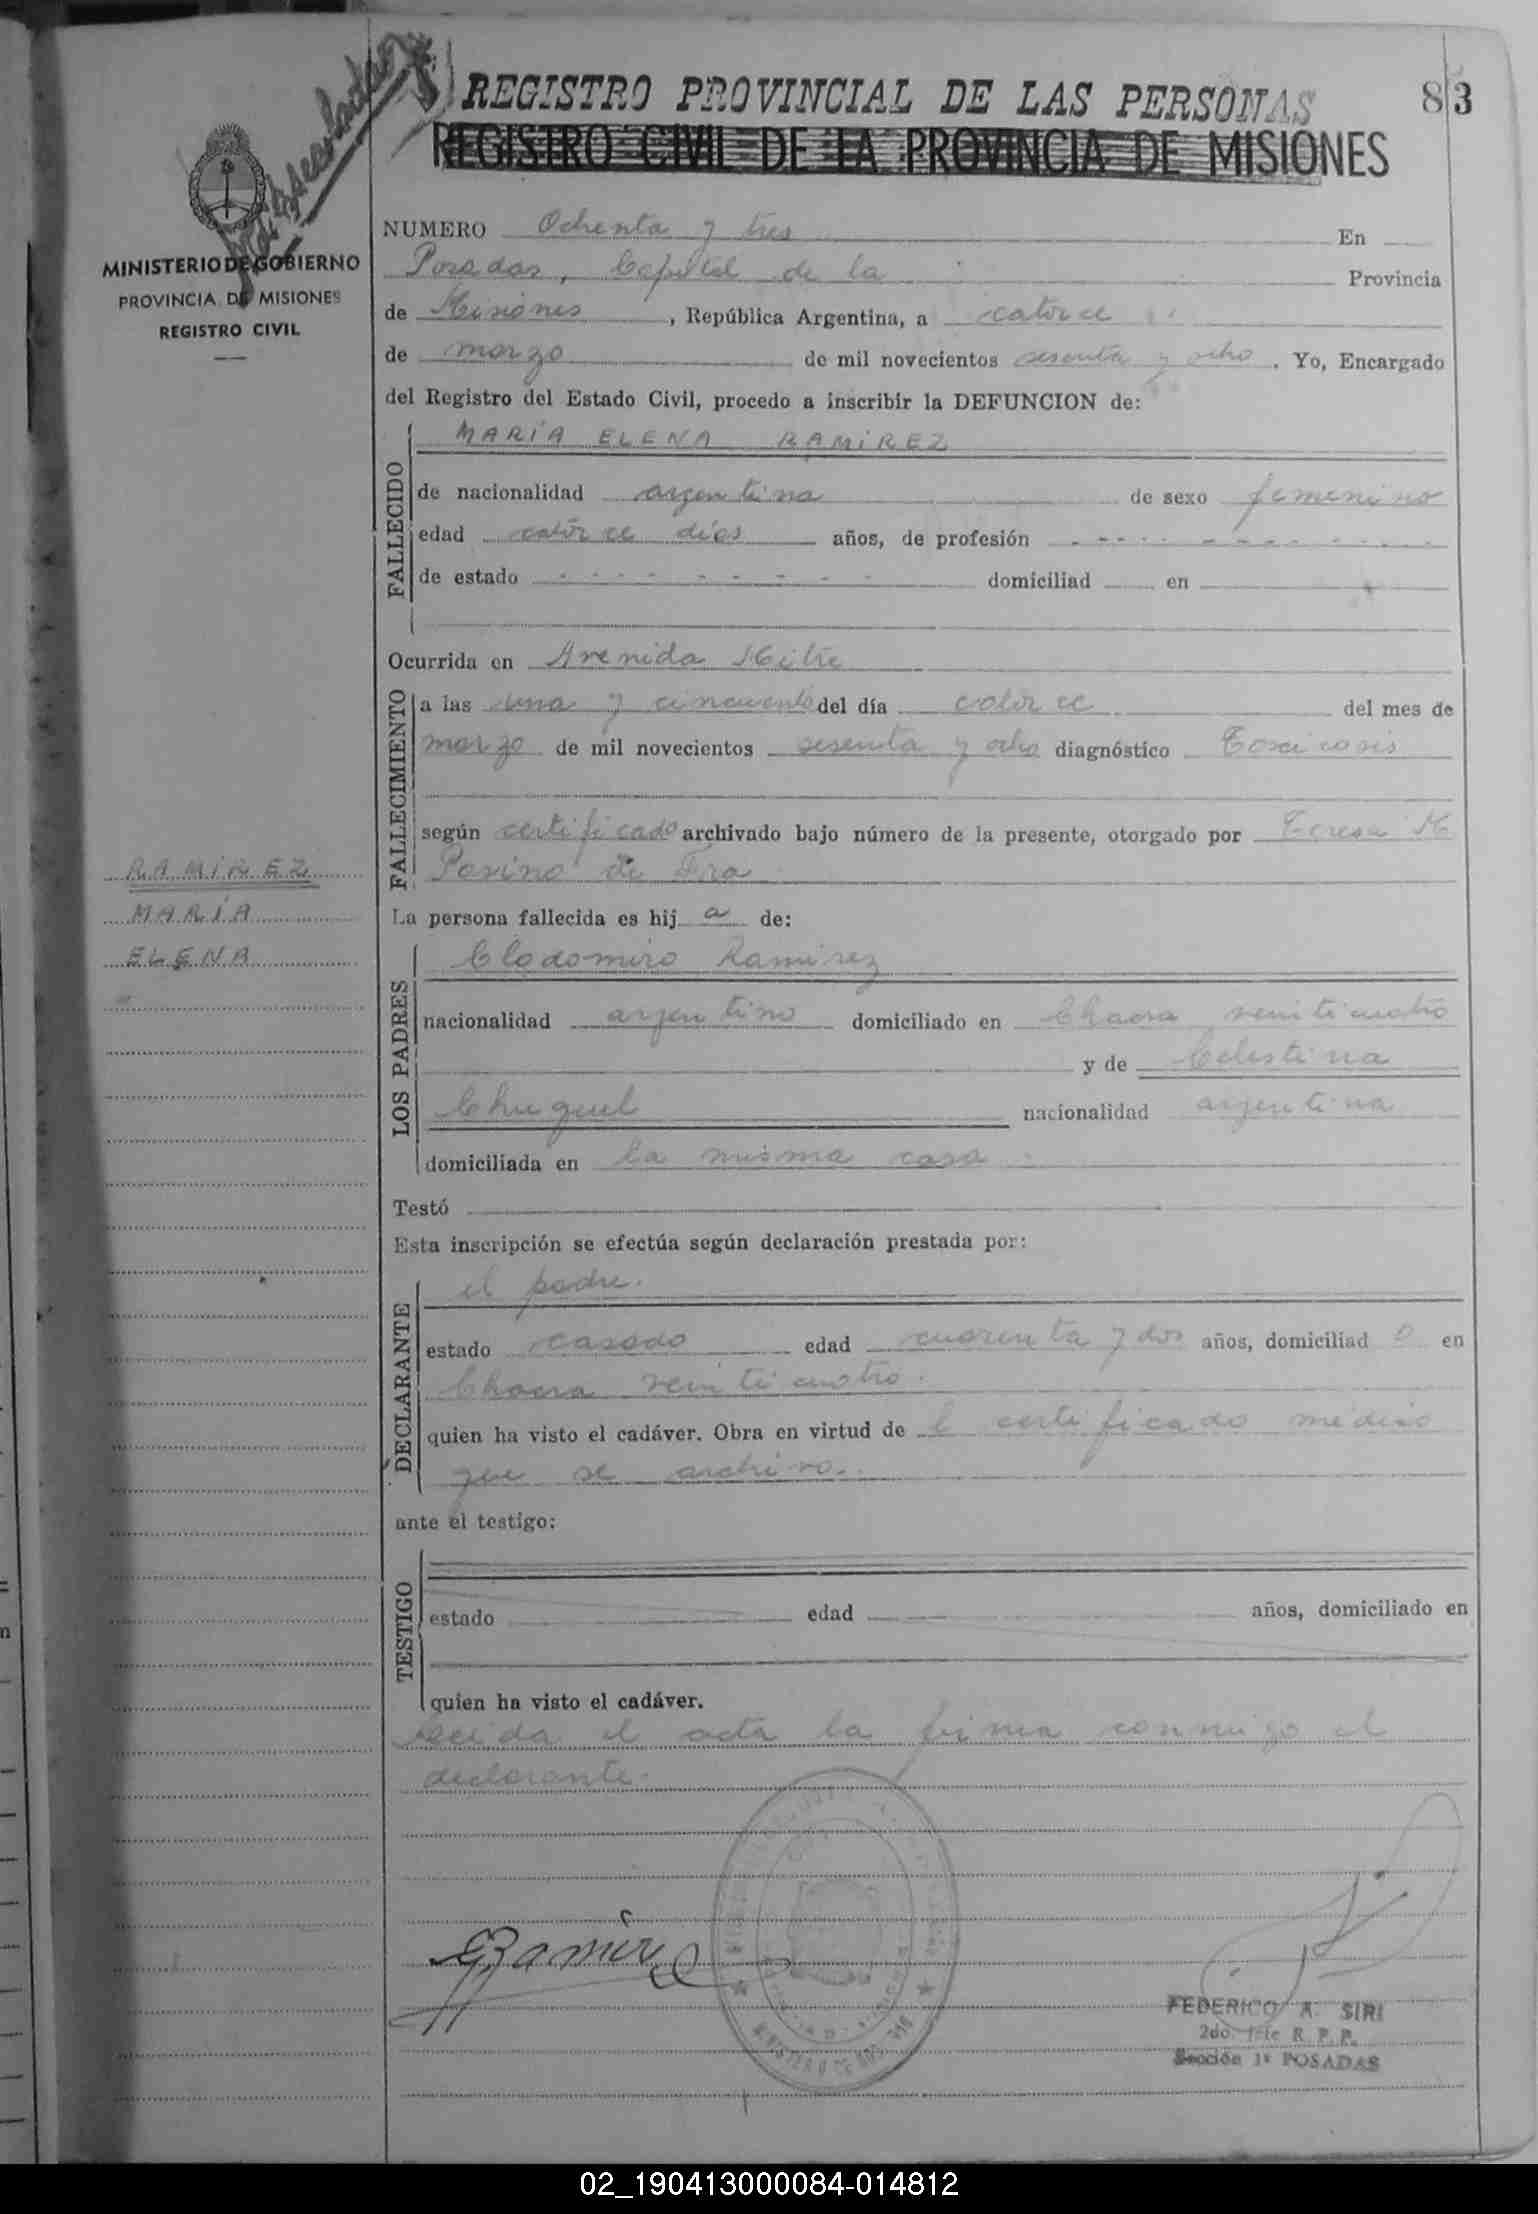 REGISTRO PROVINCIAL DE LAS PERSONAS
83
REGISTRO CIVIL DE LA PROVINCIA DE MISIONES
MINISTERIO DE GOBIERNO
PROVINCIA DE MISIONES
REGISTRO CIVIL
NUMERO Ochenta y tres En
Posadas, Capital de la Provincia
de Misiones, República Argentina, a catorce
de marzo de mil novecientos sesenta y ocho. Yo, Encargado
del Registro del Estado Civil, procedo a inscribir la DEFUNCION de:
FALLECIDO
MARÍA ELENA RAMIREZ
de nacionalidad argentina de sexo femenino
edad catorce días años, de profesión
de estado domiciliad en
Ocurrida en Avenida Mitre
FALLECIMIENTO
a las una y cincuenta del día catorce del mes de
marzo de mil novecientos sesenta y ocho diagnóstico Toxicosis
según certificado archivado bajo número de la presente, otorgado por Teresa M
de
RAMÍREZ
MARÍA
ELENA
La persona fallecida es hij a de:
LOS PADRES
Clodomiro Ramirez
nacionalidad argentino domiciliado en Chacra veinticuatro
y de Celestina
nacionalidad argentina
domiciliada en la misma casa
Testó
Esta inscripción se efectúa según declaración prestada por:
DECLARANTE
el padre.
estado casado edad cuarenta y dos años, domiciliad o en
Chacra veinticuatro.
quien ha visto el cadáver. Obra en virtud de l certificado médico
que se archiva.
ante el testigo:
TESTIGO
estado edad años, domiciliado en
quien ha visto el cadáver.
Leída el acta la firma conmigo el
declarante.
FEDERICO A. SIRI
2do. Jefe R. P. P.
Sección 1ª POSADAS
02_190413000084-014812